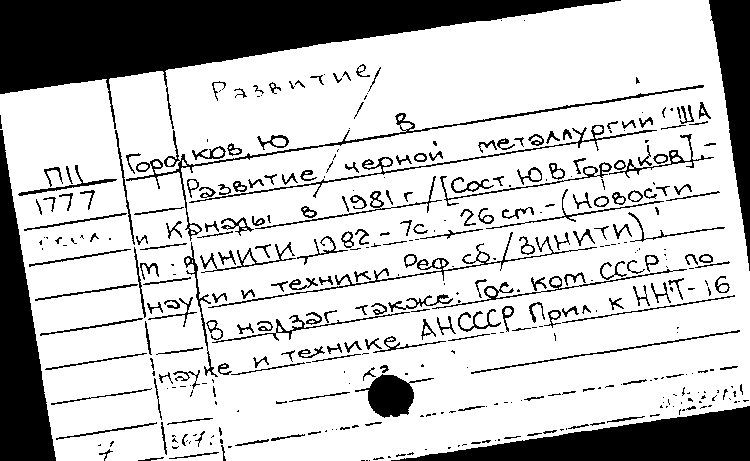 Развитие
П11
1777
прил.
Городков, Ю В
Развитие черной металлургии США
и Канады в 1981 г / [Сост. Ю В Городков]. -
т : ВИНИТИ, 1982 - 7с ; 26 cm - (Новости
науки и техники Реф сб. / ВИНИТИ) ;
В надзаг. также: Гос. ком. СССР по
науке и технике, АНСССР Прил. к ННТ-16
7 367